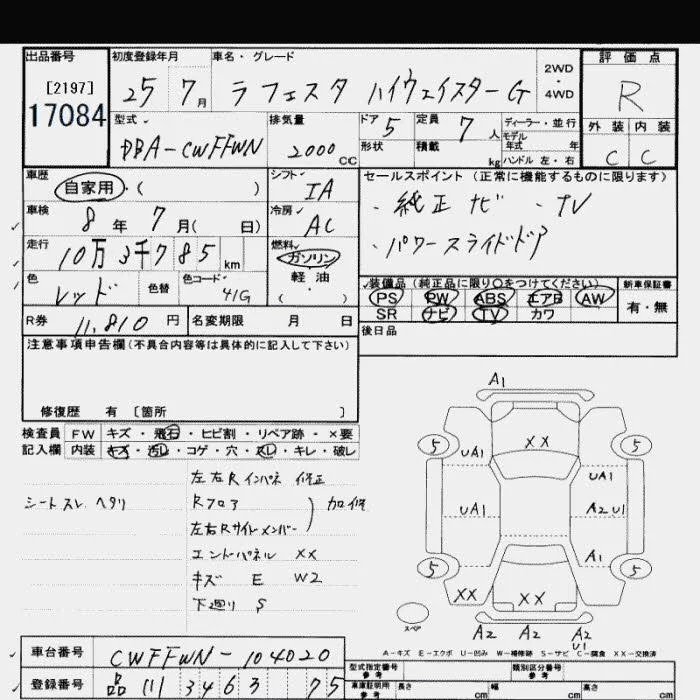 出品番号 初度登録年月 車名・グレード 評価点
[2197] 25 7月 ラフェスタ ハイウェイスターG 2WD・4WD R
17084
型式 排気量 ドア 5 定員 7人 ディーラー・並行 外装 内装
DBA-CWFFWN 2000CC 形状 積載 kg モデル年式 年 ハンドル 左・右 C C
車歴 シフト セールスポイント (正常に機能するものに限ります)
自家用・( ) IA ・純正ナビ ・TV
車検 8年 7月( 日) 冷房 AC ・パワースライドドア
走行 10万3千785km 燃料 ガソリン
軽油
・( )
色 レッド 色替 色コード 41G 装備品 (純正品に限り〇をつけてください) 新車保証書
PS PW ABS エアB AW 有・無
SR ナビ TV カワ
R券 11,810円 名変期限 月 日 後日品
注意事項申告欄(不具合内容等は具体的に記入して下さい)
修復歴 有 [箇所 ]
検査員 FW キズ・飛石・ヒビ割・リペア跡・×要
記入欄 内装 キズ・汚レ・コゲ・穴・スレ・キレ・破レ
左右Rインパネ 修正
シートスレ ヘタリ Rフロア 加修
左右Rサイドメンバー
エンドパネル XX
キズ E W2
下廻り S
A1
5 XX 5
UA1 UA1
UA1 A2 U1
A1
5 5
XX XX
スペア A2 A2 A2
U1
A-キズ E-エクボ U-凹み W-補修跡 S-サビ C-腐食 XX-交換済
車台番号 CWFFWN-104020
型式指定番号 参考 類別区分番号 参考
登録番号 品 111 3463 75
車庫証明用 参考 長さ cm 幅 cm 高さ cm